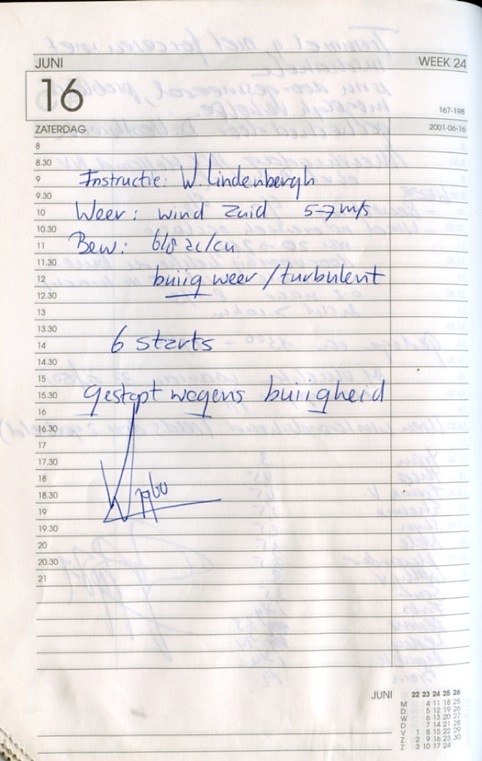 JUNI WEEK 24
16
167-198
ZATERDAG 2001-06-16
8
8.30
9 Instructie: W. Lindenbergh
9.30
10 Weer: wind Zuid 5-7 m/s
10.30
11 Bew: 6/8 sc/cu
11.30
12 buiig weer / turbulent
12.30
13
13.30
14 6 starts
14.30
15
15.30 gestopt wegens buiigheid
16
16.30
17
17.30
18
18.30
19
19.30
20
20.30
21
JUNI 22 23 24 25 26
M 4 11 18 25
D 5 12 19 26
W 6 13 20 27
D 7 14 21 28
V 1 8 15 22 29
Z 2 9 16 23 30
Z 3 10 17 24